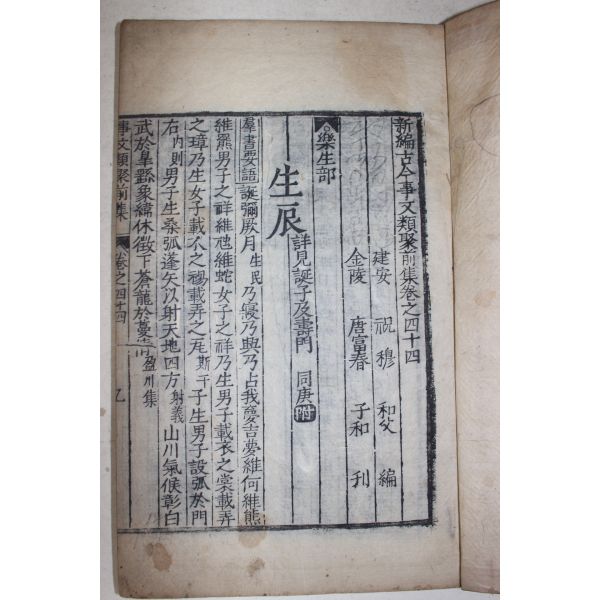 新編古今事文類聚前集卷之四十四
建安 祝穆 和父 編
金陵 唐富春 子和 刋
樂生部
生辰 詳見誕子及壽門 同庚 附
羣書要語誕彌厥月生民乃寢乃興乃占我夢吉夢維何維熊
維羆男子之祥維虺維蛇女子之祥乃生男子載衣之裳載弄
之璋乃生女子載衣之裼載弄之瓦斯干子生男子設弧於門
右內則男子生桑弧蓬矢以射天地四方射義山川氣候彰白
武於皐繇象緯休徵下蒼龍於蔓倩盈川集
事文類聚前集 卷之四十四 乙